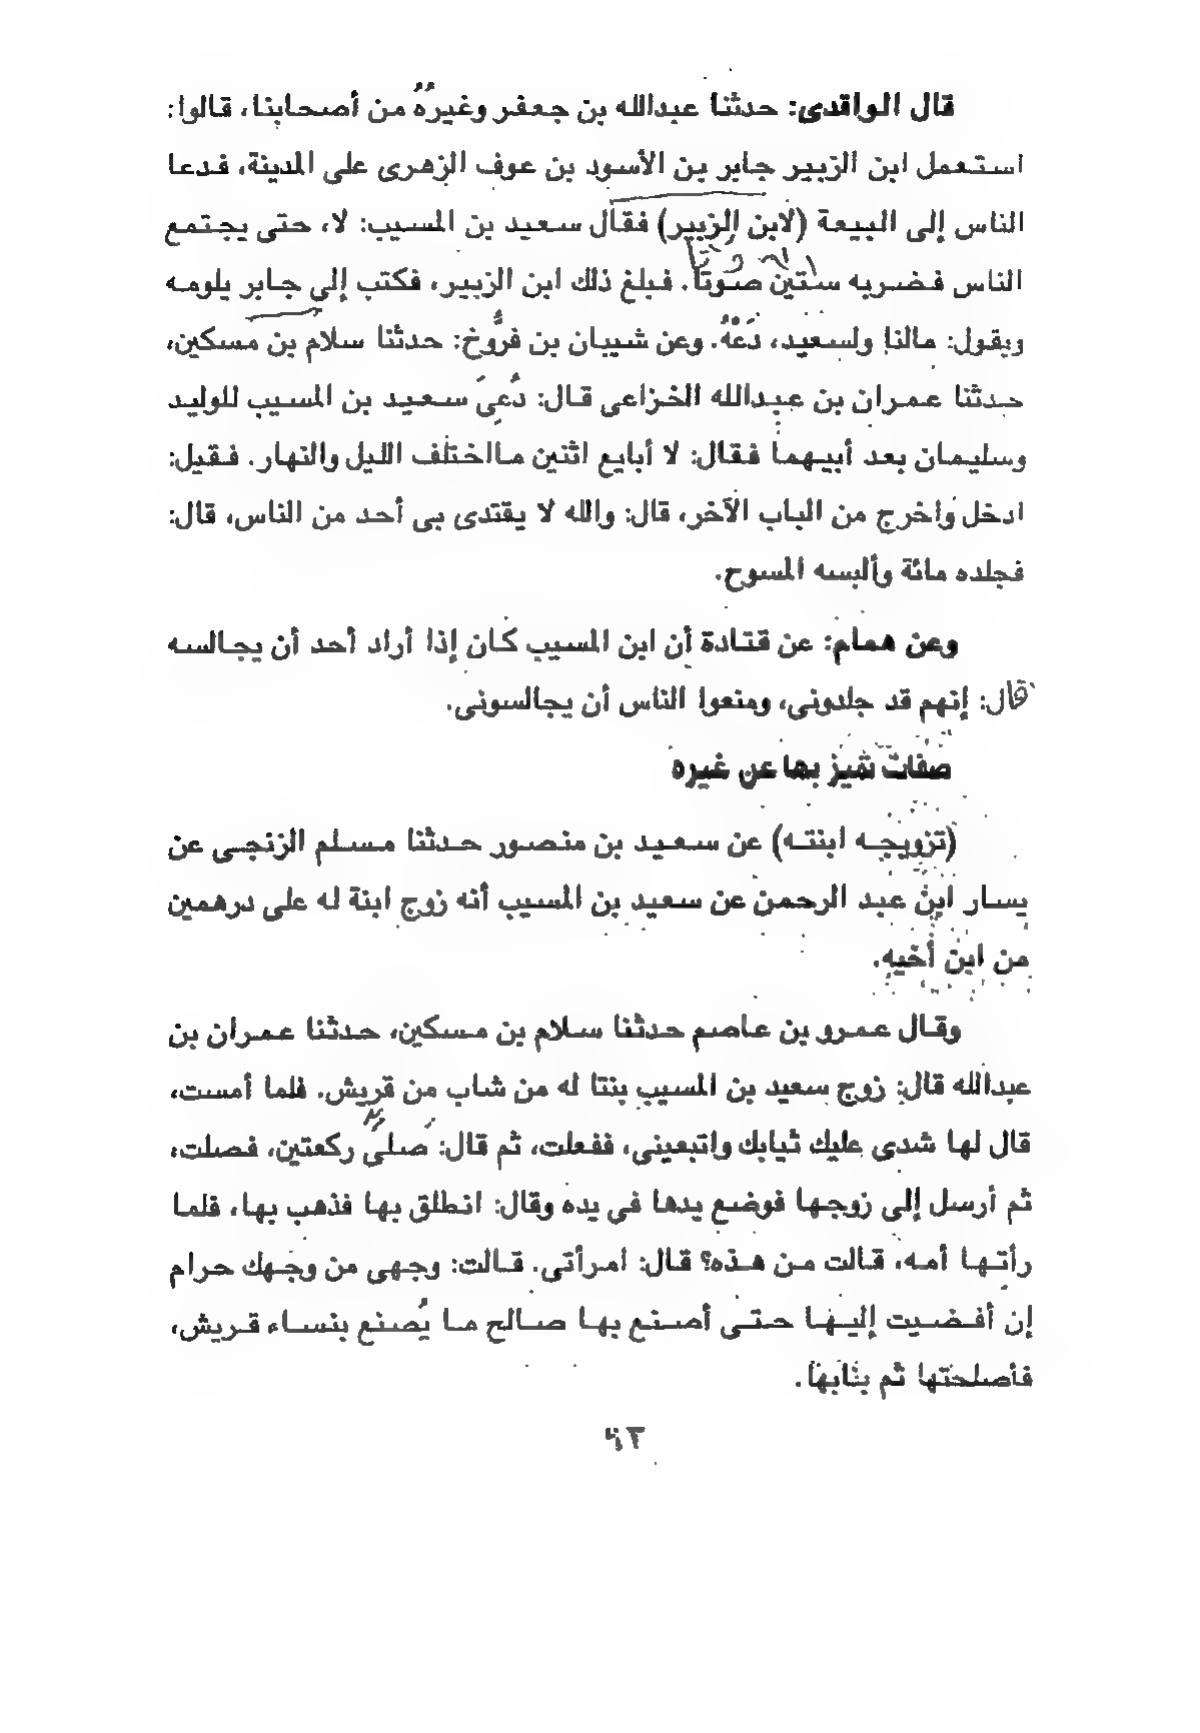 قال الواقدى: حدثنا عبدالله بن جعفر وغيرهُ من أصحابنا، قالوا:
استعمل ابن الزبير جابر بن الأسود بن عوف الزهرى على المدينة، فدعا
الناس إلى البيعة (لابن الزبير) فقال سعيد بن المسيب: لا، حتى يجتمع
الناس فضربه ستين صوتا. فبلغ ذلك ابن الزبير، فكتب إلى جابر يلومه
ويقول: مالنا ولسعيد، دَعْهُ. وعن شيبان بن فرُّوخ: حدثنا سلام بن مسكين،
حدثنا عمران بن عبدالله الخزاعى قال: دُعِىَ سعيد بن المسيب للوليد
وسليمان بعد أبيهما فقال: لا أبايع اثنين مااختلف الليل والنهار. فقيل:
ادخل واخرج من الباب الآخر، قال: والله لا يقتدى بى أحد من الناس، قال:
فجلده مائة وألبسه المسوح.
وعن همام: عن قتادة أن ابن المسيب كان إذا أراد أحد أن يجالسه
قال: إنهم قد جلدونى، ومنعوا الناس أن يجالسونى.
صفات تميز بها عن غيره
(تزويجه ابنته) عن سعيد بن منصور حدثنا مسلم الزنجى عن
يسار ابن عبد الرحمن عن سعيد بن المسيب أنه زوج ابنة له على درهمين
من ابن أخيه.
وقال عمرو بن عاصم حدثنا سلام بن مسكين، حدثنا عمران بن
عبدالله قال: زوج سعيد بن المسيب بنتا له من شاب من قريش. فلما أمست،
قال لها شدى عليك ثيابك واتبعينى، ففعلت، ثم قال: صلى ركعتين، فصلت،
ثم أرسل إلى زوجها فوضع يدها فى يده وقال: انطلق بها فذهب بها، فلما
رأتها أمه، قالت من هذه؟ قال: امرأتى. قالت: وجهى من وجهك حرام
إن أفضيت إليها حتى أصنع بها صالح ما يُصنع بنساء قريش،
فأصلحتها ثم بنابها.